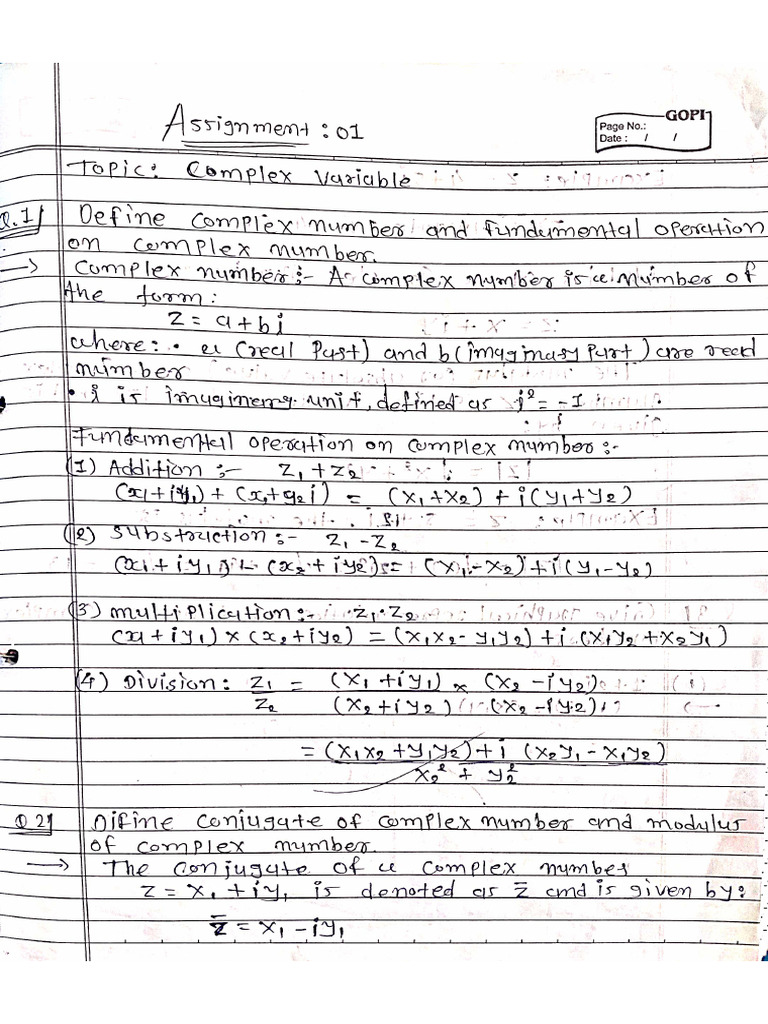 Assignment: 01
GOPI
Page No.:
Date: / /
Topic: Complex Variable
Q.1 Define complex number and fundumental operation
on complex number.
→ Complex number:- A complex number is a number of
the form:
z = a + bi
where: • a (real part) and b (imaginary part) are real
number
• i is imaginerry unit, defined as i² = -1
Fundamental operation on complex number:-
(1) Addition :- z₁ + z₂
(x₁ + iy₁) + (x₂ + y₂i) = (x₁ + x₂) + i(y₁ + y₂)
(2) Substruction :- z₁ - z₂
(x₁ + iy₁) - (x₂ + iy₂) = (x₁ - x₂) + i(y₁ - y₂)
(3) multiplication :- z₁ · z₂
(x₁ + iy₁) × (x₂ + iy₂) = (x₁x₂ - y₁y₂) + i (x₁y₂ + x₂y₁)
(4) Division: z₁ / z₂ = (x₁ + iy₁) / (x₂ + iy₂) × (x₂ - iy₂) / (x₂ - iy₂)
= (x₁x₂ + y₁y₂) + i (x₂y₁ - x₁y₂) / x₂² + y₂²
Q 2 Difine conjugate of complex number and modulus
of complex number.
→ The conjugate of a complex number
z = x₁ + iy₁ is denoted as z̄ and is given by:
z̄ = x₁ - iy₁